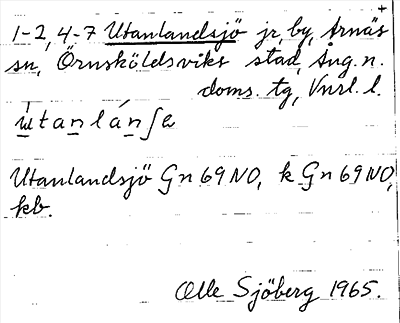 +
1-2, 4-7 Utanlandsjö jr, by, Arnäs
sn, Örnsköldsviks stad, Ång. n.
doms. tg, Vnrl. l.
Utanlandsjö Gn 69 NO, k Gn 69 NO,
kb.
Olle Sjöberg 1965.